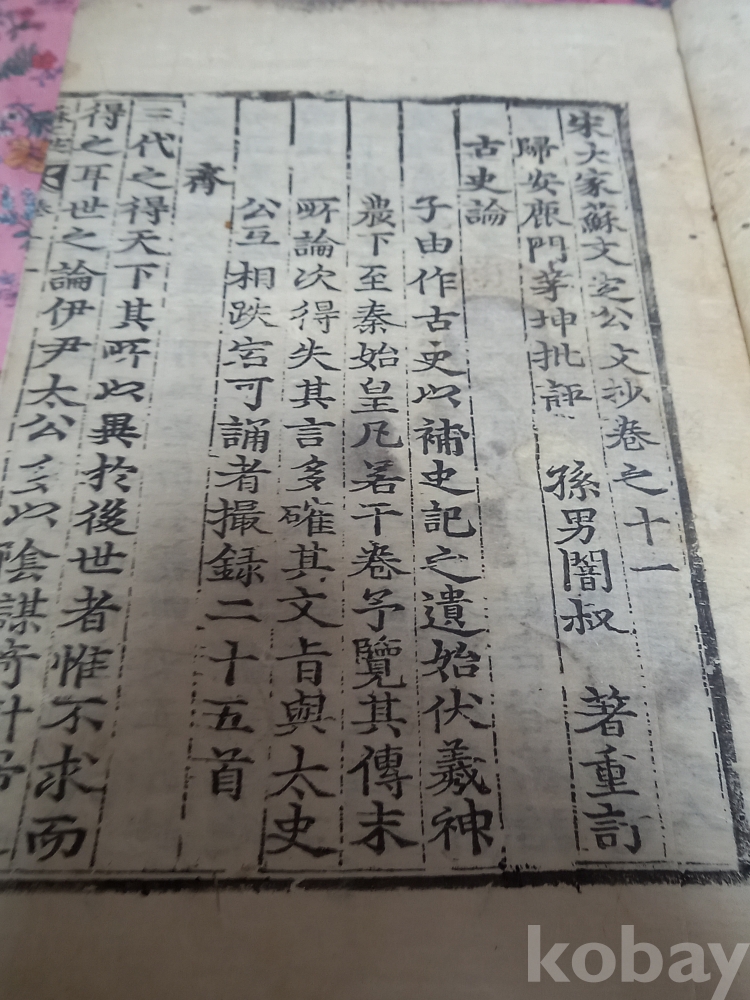 宋大家蘇文定公文抄卷之十一
歸安鹿門茅坤批評 孫男闇叔 著重訂
古史論
子由作古史以補史記之遺始伏羲神
農下至秦始皇凡若干卷予覽其傳末
所論次得失其言多確其文旨與太史
公互相跌宕可誦者撮録二十五首
齊
三代之得天下其所以異於後世者惟不求而
得之耳世之論伊尹太公多以陰謀奇計
kobay